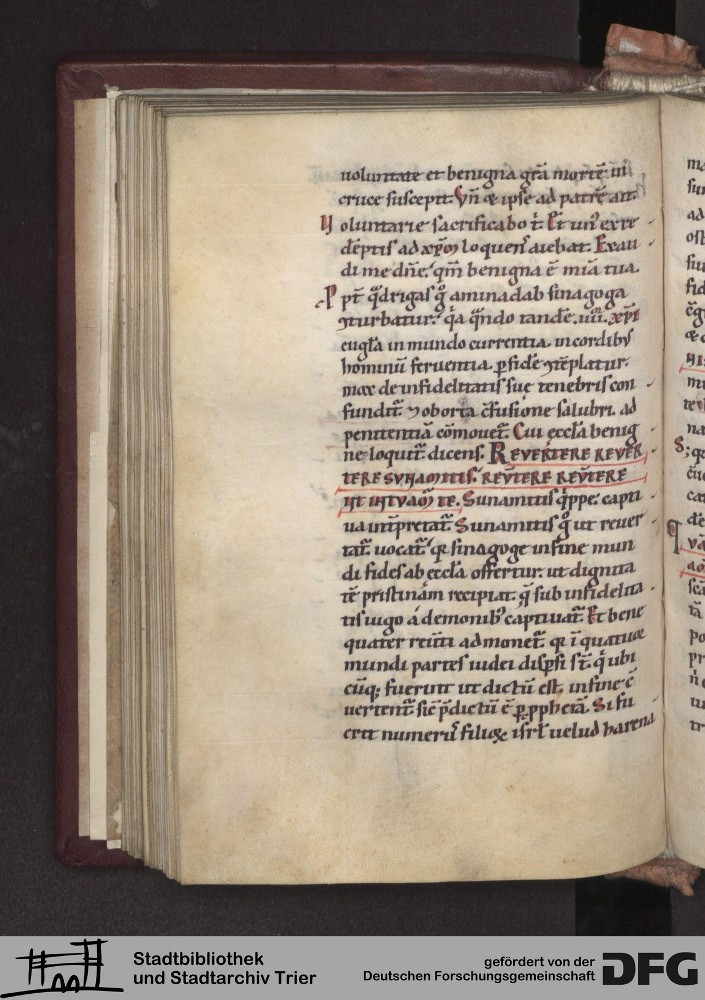 uoluntate et benigna gr̄a mortē in
cruce suscepit. Vn̄ & ipse ad patrē ait.
Voluntarie sacrificabo t̄. Et un᾽ ex re
dēptis ad xp̄m loquens aiebat. Exau
di me dn̄e. qm̄ benigna ē mīa tua.
Ppt̄ q̄drigas gͦ aminadab sinagoga
ɔturbatur. q̄a qn̄do tandē .iiii. xp̄i
eugl̄a in mundo currentia. in cordibus
hominū feruentia. ꝑfidē ɔtēplatur.
mox de infidelitatis suę tenebris con
fundit᷑. & oborta
penitentiā cōmouet᷑. Cui ęccl̄a benig
ne loquit᷑ dicens. REVERTERE REVER
TERE SVNAMITIS. REVT̄ERE REVT̄ERE
VT INTVAM̄ TE. Sunamitis q̄ppe. capti
ua int̄pretat᷑. Sunamitis gͦ ut reuer
tat᷑ uocat᷑. qꝛ sinagogę in fine mun
di fides ab ęccl̄a offertur. ut dignita
tē pristinam recipiat. q̄ sub infidelita
tis iugo a demonib᾽ captiuat᷑. Et bene
quater reuͥti admonet᷑. qꝛ ī quatuor
mundi partes iudei disꝑsi st̄. qͥ ubi
cūq; fuerint ut dictū est. in fine c̄
uertent᷑ sic p̄dictū ē ꝑ ꝓphetā. Si fu
erit numerus filioꝝ isrl̄ uelud harena
Stadtbibliothek
und Stadtarchiv Trier
gefördert von der
Deutschen Forschungsgemeinschaft
DFG